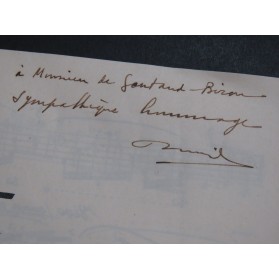 à Monsieur de Gontaud-Biron
sympathique hommage